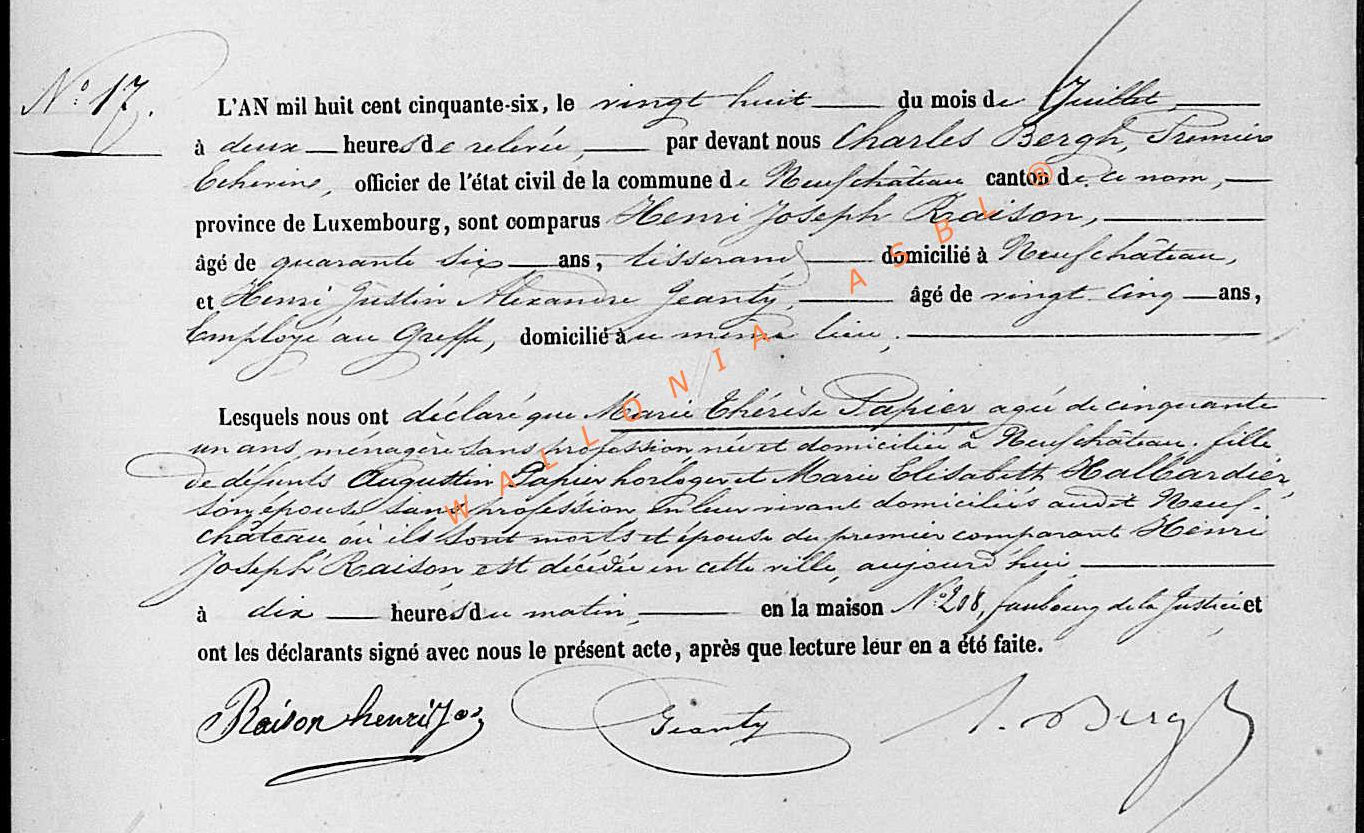 N° 17.
L'AN mil huit cent cinquante-six, le vingt huit du mois de Juillet,
à deux heures de relevée, par devant nous Charles Bergh, Premier
Echevin, officier de l'état civil de la commune de Neufchâteau canton de ce nom,
province de Luxembourg, sont comparus Henri Joseph Raison,
âgé de quarante six ans, tisserand domicilié à Neufchâteau,
et Henri Justin Alexandre Jeanty, âgé de vingt cinq ans,
Employé au Greffe, domicilié au même lieu,
Lesquels nous ont déclaré que Marie Thérèse Papier agée de cinquante
un ans, ménagère sans profession née et domiciliée à Neufchâteau, fille
de défunts Augustin Papier horloger et Marie Elisabeth Halbardier,
son épouse sans profession en leur vivant domiciliés audit Neuf-
château où ils sont morts et épouse du premier comparant Henri
Joseph Raison, est décédée en cette ville, aujourd'hui,
à dix heures du matin, en la maison N° 208, faubourg de la Justice et
ont les déclarants signé avec nous le présent acte, après que lecture leur en a été faite.
Raison henri Jos
Jeanty
Bergh
WALLONIA ASBL ®